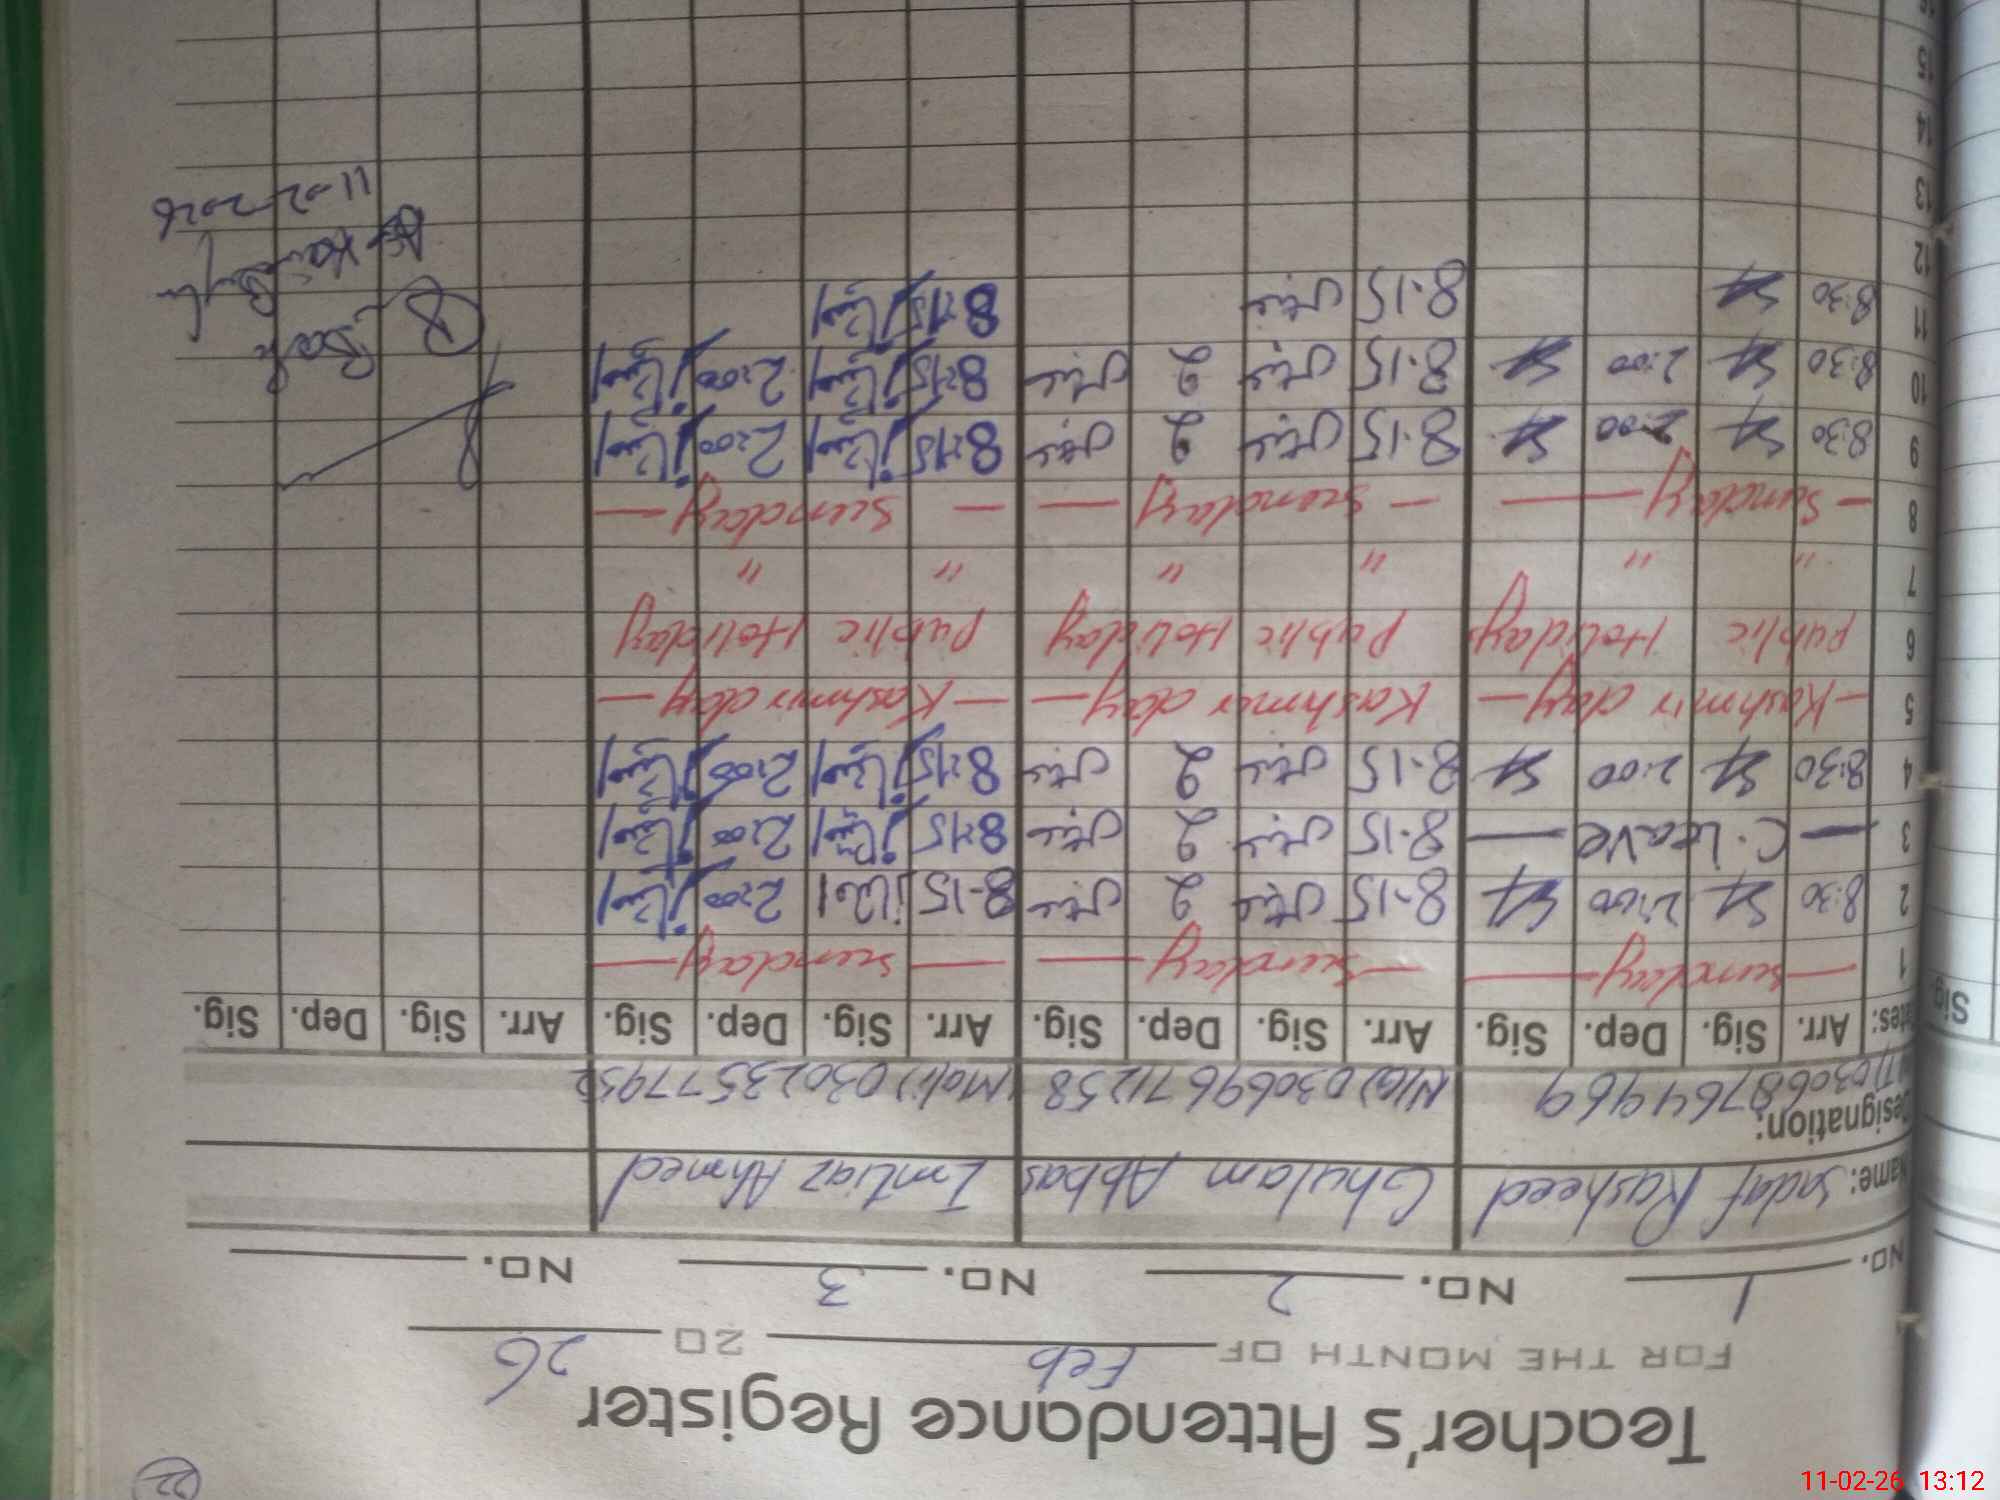 22
Teacher's Attendance Register
FOR THE MONTH OF Feb 20 26
NO. 1 NO. 2 NO. 3 NO.
Name: Sadaf Rasheed Ghulam Abbas Imtiaz Ahmed
Designation: 03068764469 N/Q) 03069671258 (Mali) 03023577952
Dates: Arr. Sig. Dep. Sig. Arr. Sig. Dep. Sig. Arr. Sig. Dep. Sig. Arr. Sig. Dep. Sig.
1 — Sunday — — Sunday — — Sunday —
2 8:30 2:00 8.15 2 8-15 2:00
3 — C. Leave — 8.15 2 8:15 2:00
4 8:30 2:00 8.15 2 8:15 2:00
5 — Kashmir day — Kashmir day — — Kashmir day —
6 Public Holiday Public Holiday Public Holiday
7 " " " " " "
8 — Sunday — — Sunday — — Sunday —
9 8:30 2:00 8.15 2 8:15 2:00
10 8:30 2:00 8.15 2 8:15 2:00
11 8:30 8.15 8:15
12
13
14
15
16
11-02-2026
Sig.
11-02-26 13:12